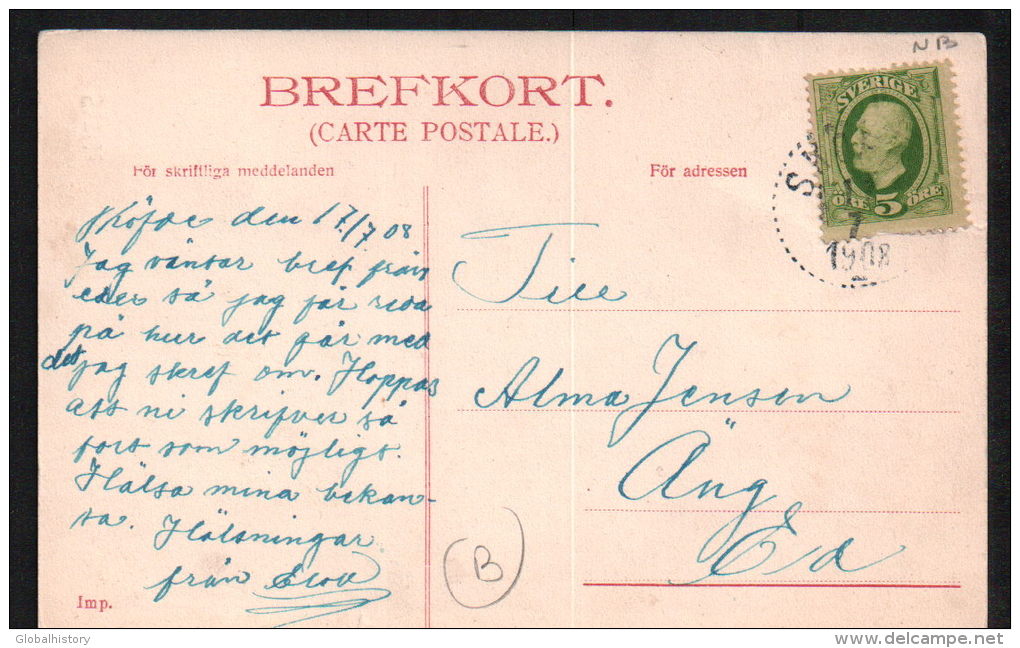 NB
BREFKORT.
(CARTE POSTALE.)
SVERIGE
5
ÖRE
ÖRE
1908
7
För skriftliga meddelanden
För adressen
den 17/7 08
Jag väntar bref från
eder så jag får reda
på hur det går med
det
jag skref om. Hoppas
att ni skrifver så
fort som möjligt.
Hälsa mina bekan-
ta. Hälsningar
från
Till
Alma Jensen
Äng
Ed
B
Imp.
Globalhistory
www.delcampe.net